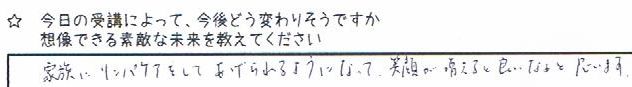 ☆ 今日の受講によって、今後どう変わりそうですか
想像できる素敵な未来を教えてください
家族にリンパケアをしてあげられるようになって、笑顔が増えると良いなぁと思います。